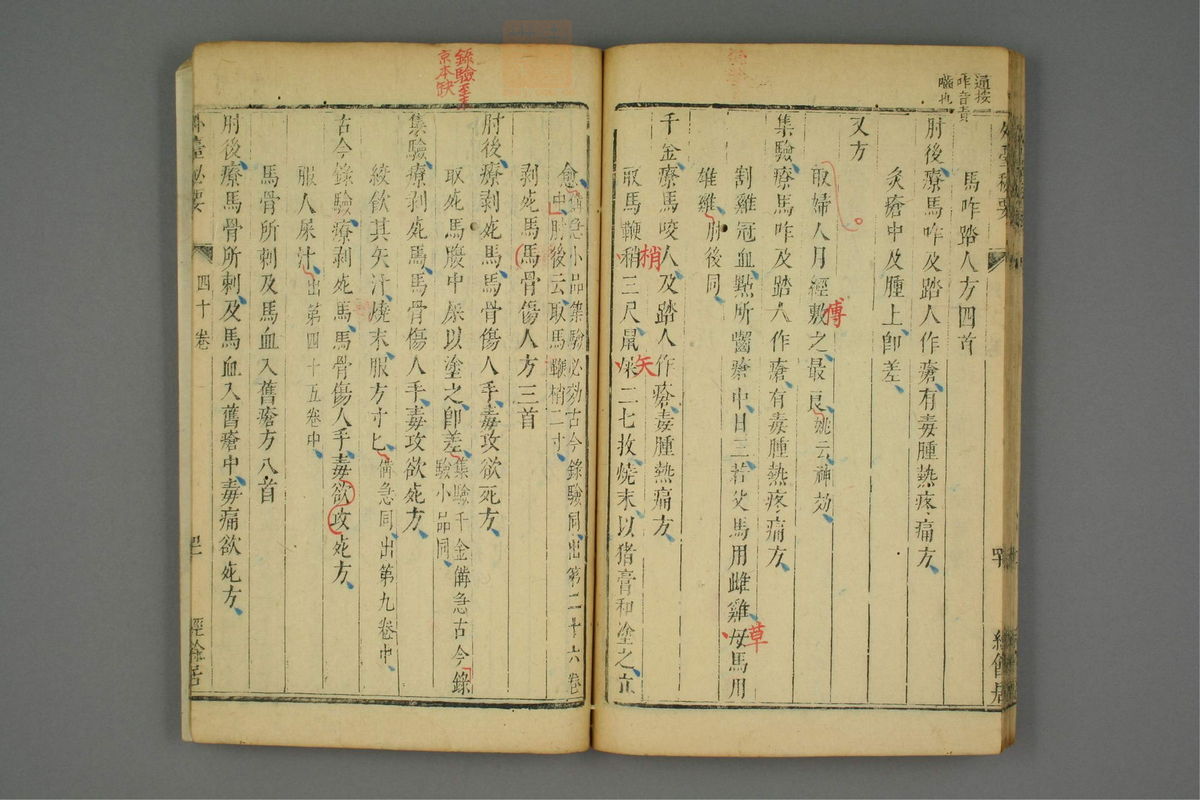 通按
咋音責
嚙也
馬咋踏人方四首
肘後療馬咋及踏人作瘡有毒腫熱疼痛方
灸瘡中及腫上即差
又方
取婦人月經敷之最良姚云神効
傅
集驗療馬咋及踏人作瘡有毒腫熱疼痛方
割雞冠血點所齧瘡中日三若父馬用雌雞母馬用
草
雄雞肘後同
千金療馬咬人及踏人作瘡毒腫熱痛方
梢
矢
取馬鞭稍三尺鼠屎二七枚燒末以猪膏和塗之立
愈備急小品集驗必効古今錄驗同出第二十六卷
中肘後云取馬鞭梢二寸
剥死馬馬骨傷人方三首
肘後療剥死馬馬骨傷人手毒攻欲死方
取死馬腹中屎以塗之即差集驗千金備急古今錄
驗小品同
錄驗至手
京本缺
集驗療剥死馬馬骨傷人手毒攻欲死方
絞飲其矢汁燒末服方寸匕備急同出第九卷中
古今錄驗療剥死馬馬骨傷人手毒欲攻死方
服人屎汁出第四十五卷中
馬骨所刺及馬血入舊瘡方八首
肘後療馬骨所刺及馬血入舊瘡中毒痛欲死方
外臺秘要
四十卷
經餘居